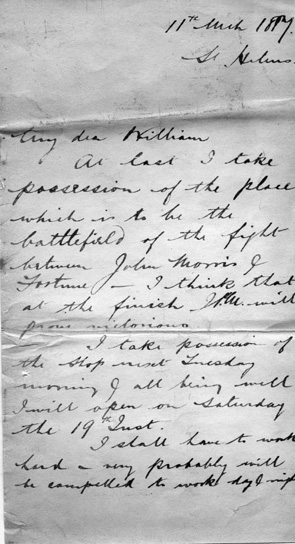 11th Mch 1887.
St. Helens.
My dea William
At last I take
possession of the place
which is to be the
battlefield of the fight
between John Morris &
Fortune – I think that
at the finish J.M. will
prove victorious
I take possession of
the shop next Tuesday
morning & all being well
I will open on Saturday
the 19th Inst.
I shall have to work
hard – very probably will
be compelled to work day & nigh